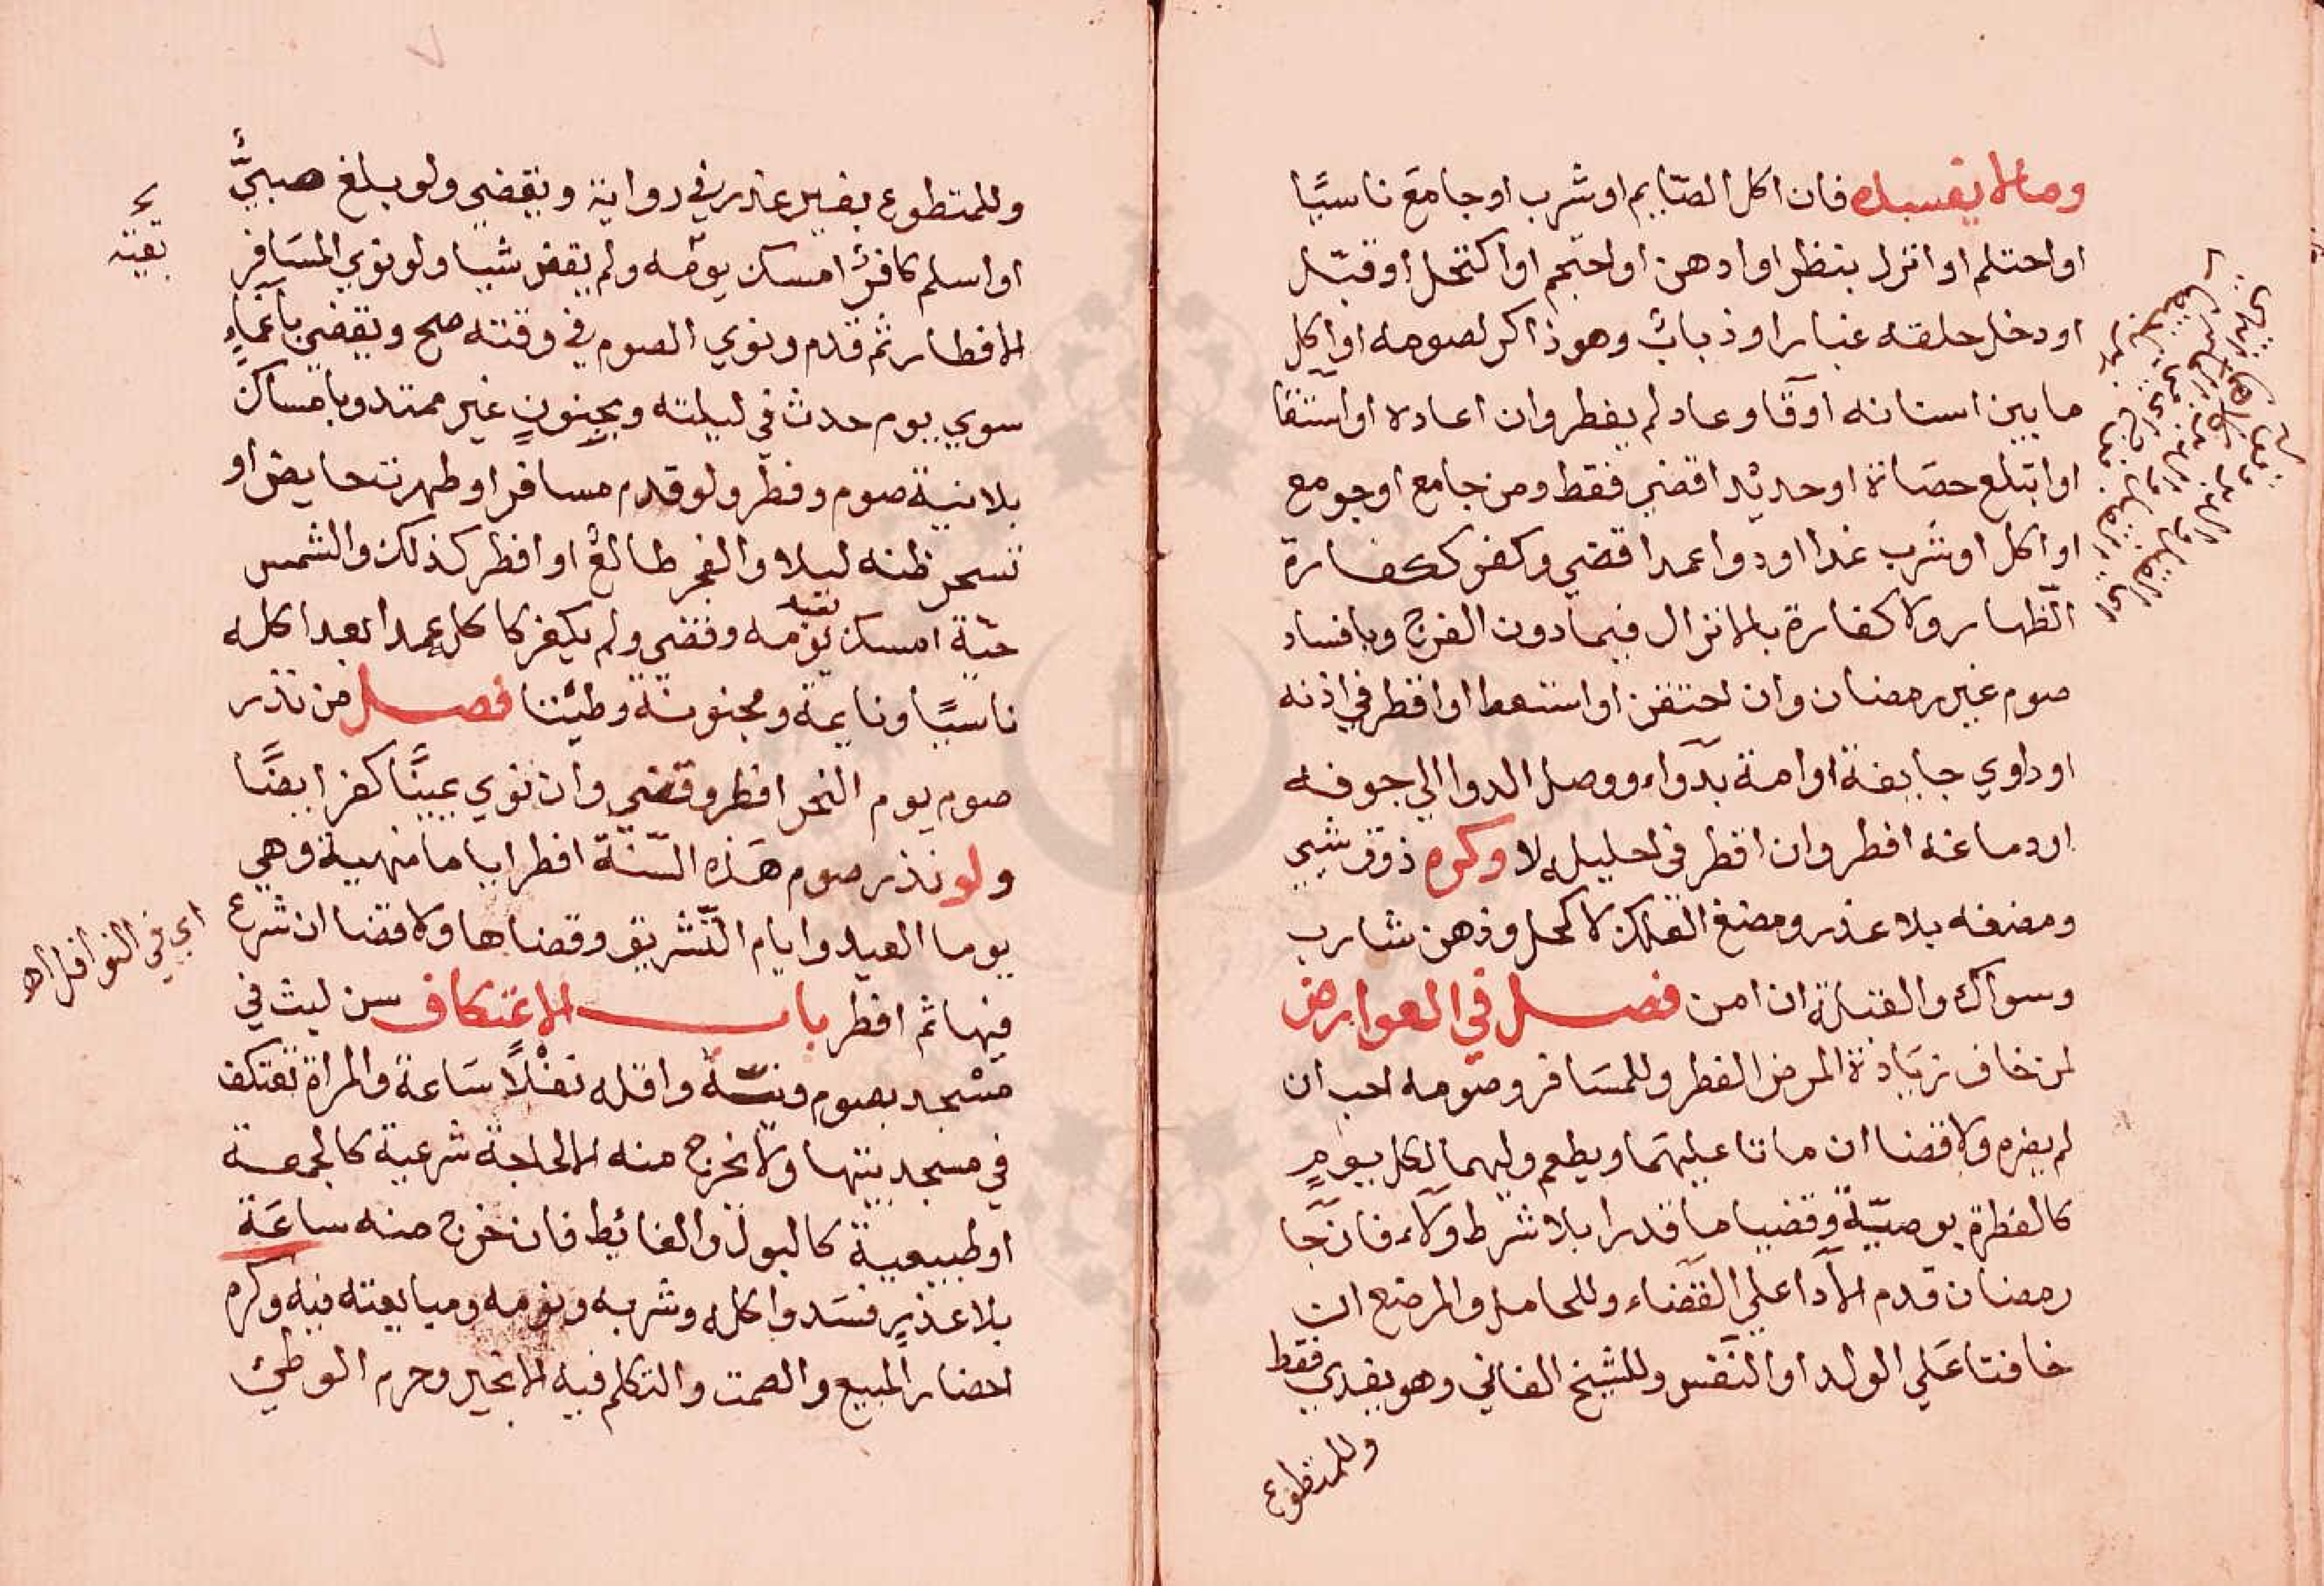 وما لا يفسده فان اكل الصّايم او شرب او جامعَ ناسيًا
او احتلم او انزل بنظر او ادهن او احتجم او اكتحل او قبّل
او دخل حلقه غبار او ذباب وهو ذاكر لصومه او اكل
ما بين اسنانه او قا وعاد لم يفطر وان اعاده او استقا
او ابتلع حصَاة او حديدا قضي فقط ومن جامع او جومع
او اكل او شرب غدا او دوا عمدا قضي وكفر ككفارة
الظهار ولا كفارة بالانزال فيما دون الفرج وبافساد
صوم غير رمضان وان احتقن او استعط او اقطر في اذنه
او داوي جايفة او امة بدواء ووصل الدوا الي جوفه
او دماغه افطر وان اقطر في احليله لا وكره ذوق شيي
ومضغه بلا عذر ومضغ العلك لا كحل ودهن شارب
وسواك والقبلة ان امن فصل في العوارض
لمن خاف زيَادة المرض الفطر وللمسَافر وصومه احب ان
لم يضره ولا قضا ان ماتا عليهمَا ويطعم وليهما لكل يومٍ
كالفطرة بوصيّة وقضيا ما قدرا بلا شرط ولاء فان جا
رمضان قدم الادا علي القضَاء وللحامل والمرضع ان
خافتا عَلي الولد او النفس وللشيخ الفاني وهو يفدي فقط
وللمتطوع
وللمتطوع بغير عذر في رواية ويقضي ولو بلغ صبيٌّ
او اسلم كافرٌ امسك يومه ولم يقض شيا ولو نوي المسَافر
الافطار ثم قدم ونوي الصوم في وقته صح ويقضي باغماءٍ
سوي يوم حدث في ليلته وبجنونٍ غير ممتد وبامساك
بلا نية صوم وفطر ولو قدم مسافر او طهرت حايض او
تسحر ظنه ليلا والفجر طالع او افطر كذلك والشمس
حيّة امسك يومه وقضي ولم يكفر كاكل عمدا بعد اكله
ناسيًا ونايمة ومجنونة وطيتا فصل من نذر
صوم يوم النحر افطر وقضي وان نوي يمينًا كفر ايضًا
ولو نذر صوم هَذه السّنة افطر اياما منهية وهي
يوما العيد وايام التّشريق وقضاها ولا قضا ان شرع
فيها ثم افطر باب الاعتكاف سن لبث في
مسْجد بصوم ونيّة واقله نفْلًا سَاعة والمراة تعتكف
في مسجد بيتها ولا يخرج منه الا لحاجة شرعية كالجمعة
او طبيعية كالبول والغائط فان خرج منه ساعَة
بلا عذرٍ فسَد واكله وشربه ونومه ومبايعته فيه وكره
احضار المبيع والصمت والتكلم فيه الا بخير وحرم الوطئ
بقية
اي في النوافل اه